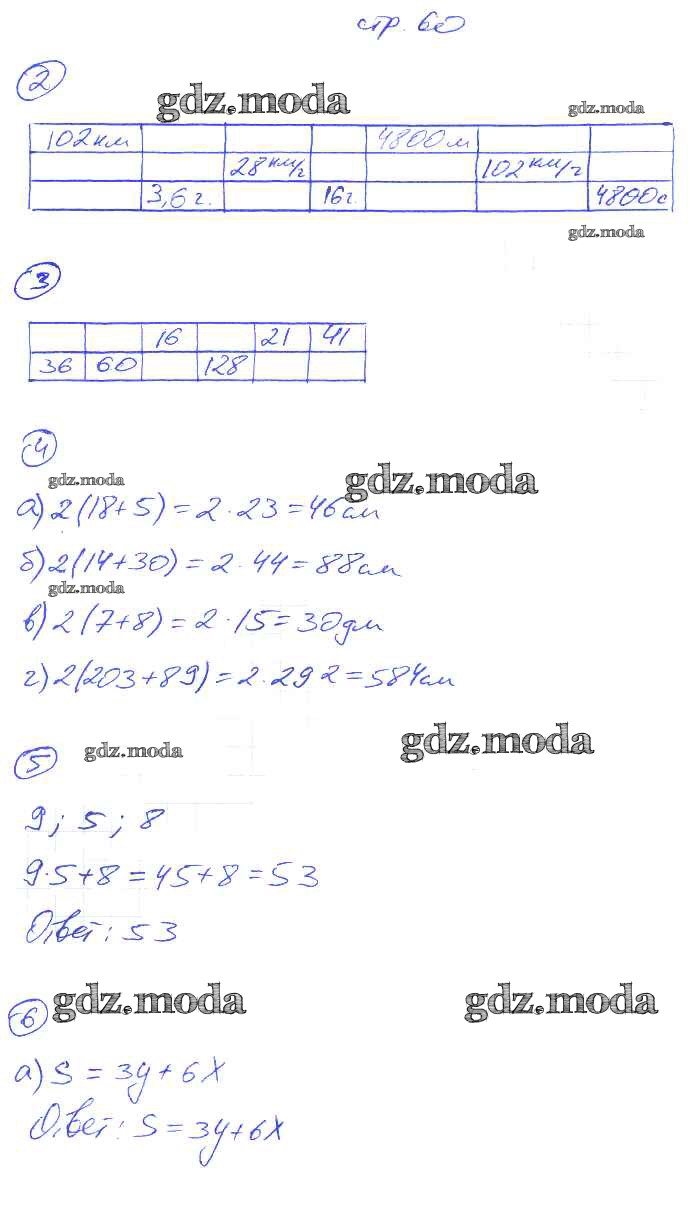 стр. 60
2
gdz.moda
gdz.moda
102км 4800м
28км/г 102км/г
3,6г. 16г. 4800с
gdz.moda
3
16 21 41
36 60 128
4
gdz.moda
gdz.moda
а) 2(18+5) = 2·23 = 46см
б) 2(14+30) = 2·44 = 88см
gdz.moda
в) 2(7+8) = 2·15 = 30дм
г) 2(203+89) = 2·292 = 584см
5
gdz.moda
gdz.moda
9; 5; 8
9·5+8 = 45+8 = 53
Ответ: 53
6
gdz.moda
gdz.moda
а) S = 3y + 6X
Ответ: S = 3y+6X